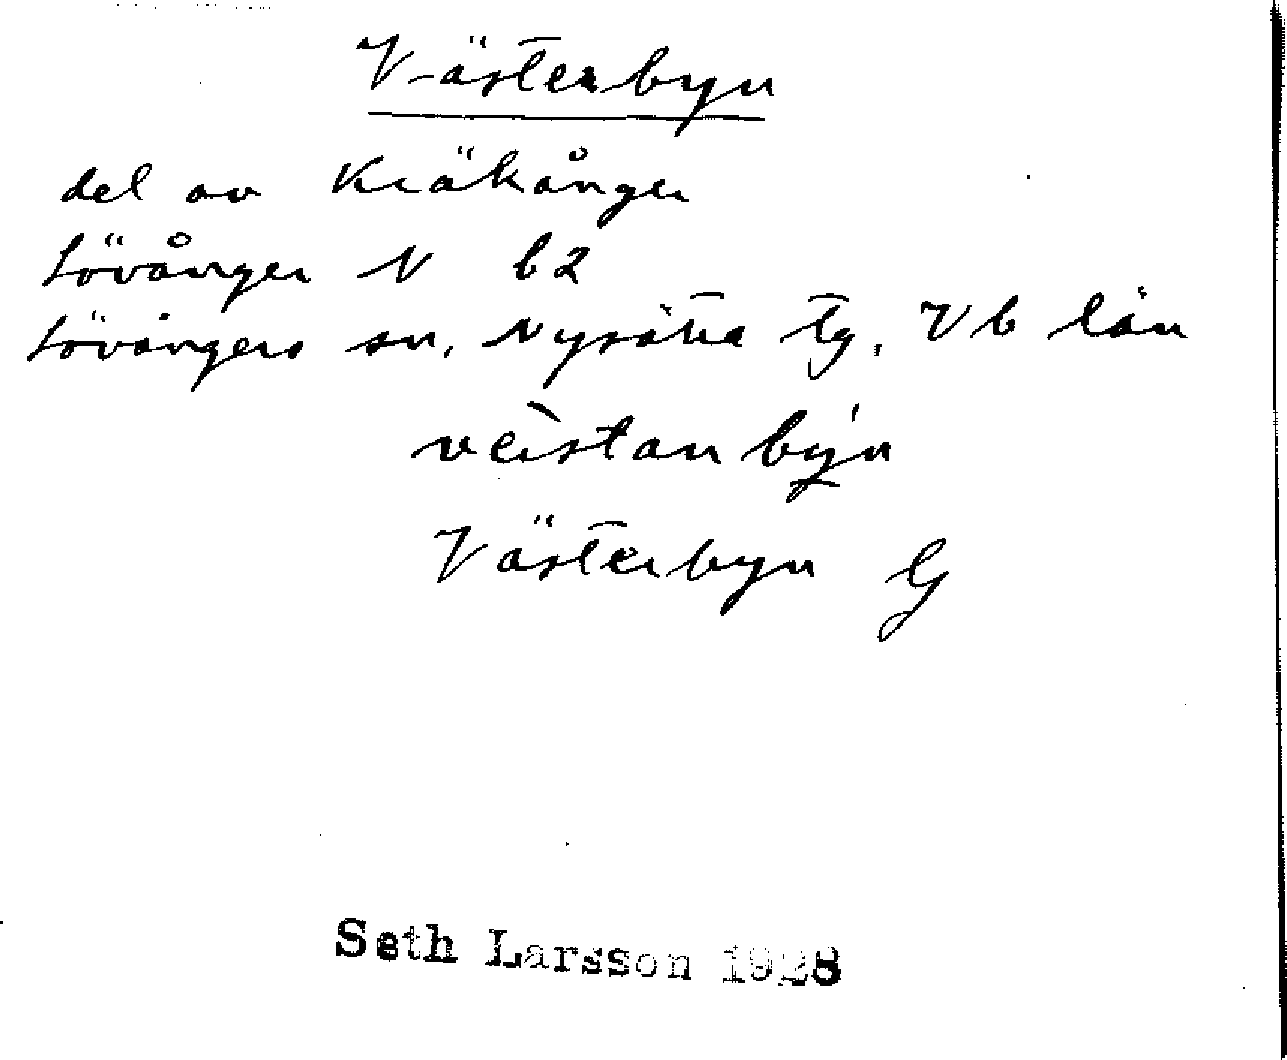 Västerbyn
del av Kräkånger
Lövånger N b2
Lövångers sn, Nysätra tg, Vb län
vèistanbýn
Västerbyn G
Seth Larsson 1928